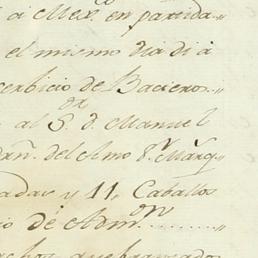 a Mex.co en partida
el mismo dia di a
serbicio de Baciero
al S.or d. Manuel
drñ. del Amo d.n Marq
adas y 11, Caballos
io de Adm.on